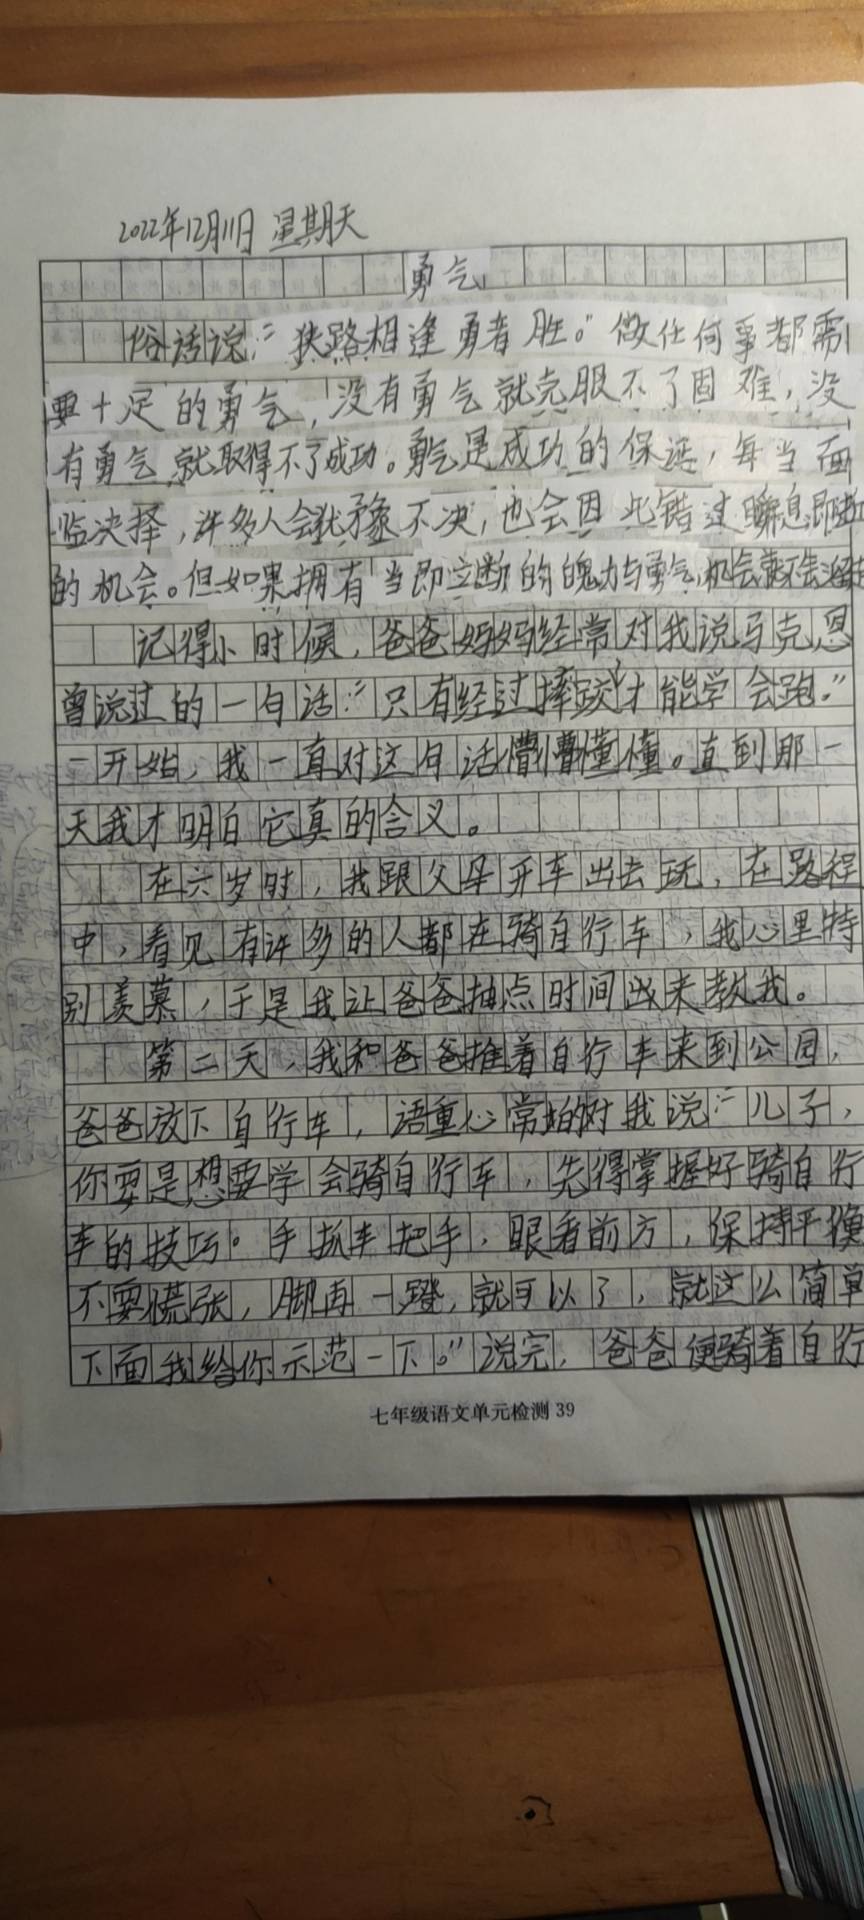 2022年12月11日 星期天
勇气
俗话说:“狭路相逢勇者胜。”做任何事都需
要十足的勇气,没有勇气就克服不了困难,没
有勇气就取得不了成功。勇气是成功的保证,每当面
临决择,许多人会犹豫不决,也会因此错过瞬息即逝
的机会。但如果拥有当即立断的的魄力与勇气,机会就不会溜
记得小时候,爸爸妈妈经常对我说马克思
曾说过的一句话:“只有经过摔跤才能学会跑。”
一开始,我一直对这句话懵懵懂懂。直到那一
天我才明白它真的含义。
在六岁时,我跟父母开车出去玩,在路程
中,看见有许多的人都在骑自行车,我心里特
别羡慕,于是我让爸爸抽点时间出来教我。
第二天,我和爸爸推着自行车来到公园,
爸爸放下自行车,语重心常的对我说:“儿子,
你要是想要学会骑自行车,先得掌握好骑自行
车的技巧。手抓车把手,眼看前方,保持平衡
不要慌张,脚再一蹬,就可以了,就这么简单
下面我给你示范一下。”说完,爸爸便骑着自行
七年级语文单元检测 39